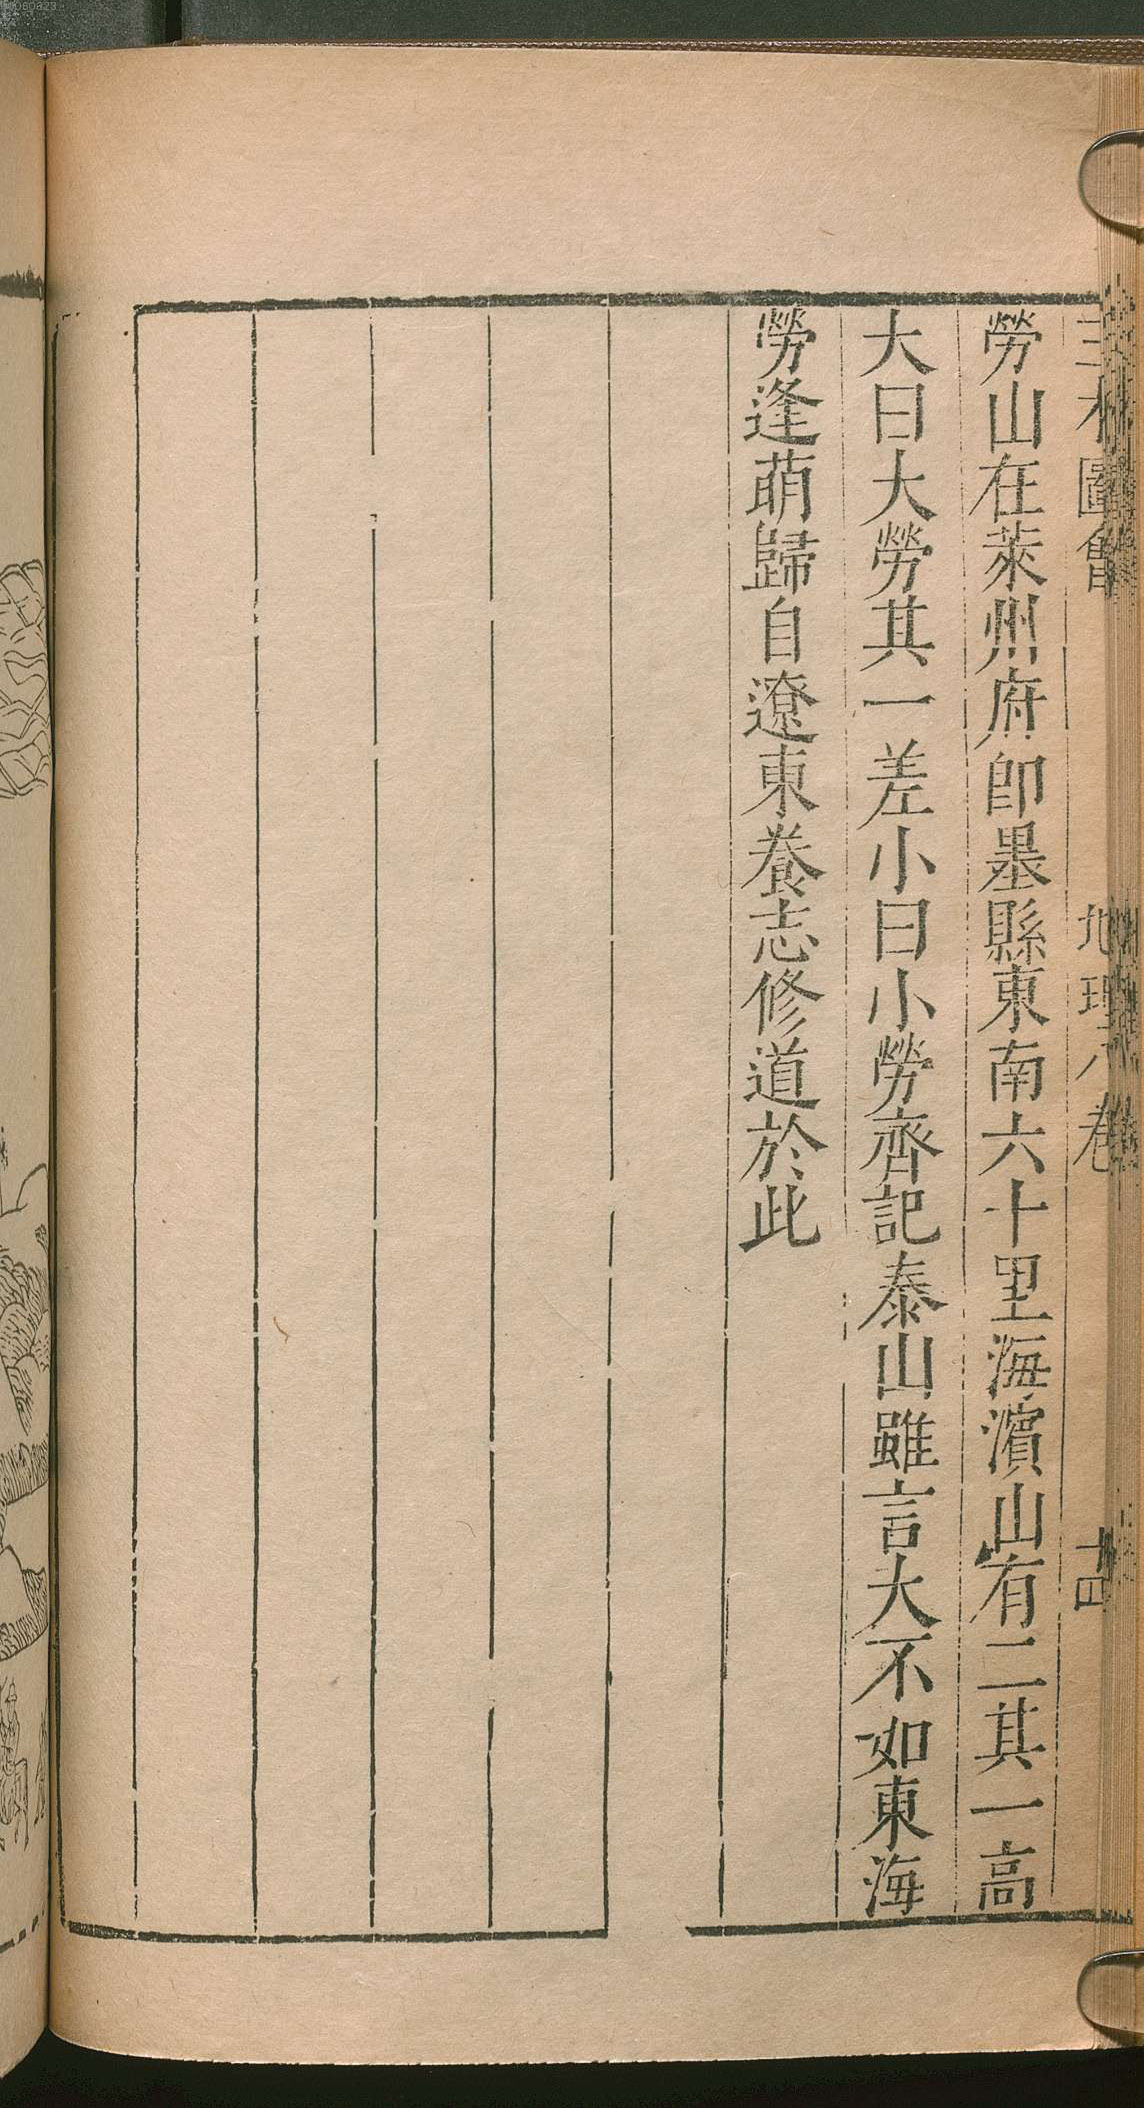 三才圖會 地理八卷 十四
勞山在萊州府卽墨縣東南六十里海濱山有二其一高
大曰大勞其一差小曰小勞齊記泰山雖言大不如東海
勞逄萌歸自遼東養志修道於此